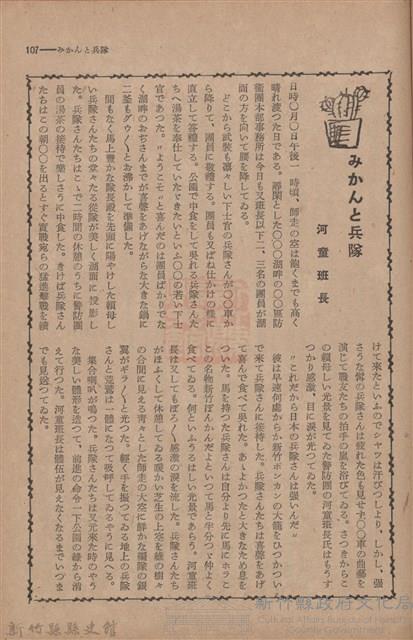 107——みかんと兵隊
みかんと兵隊
河童班長
日時〇月〇日午後一時頃、師走の空は飽くまでも高く
晴れ渡つた日である。靜閑とした〇〇湖畔の〇〇區防
衞團本部事務所は今日も又班長以下二、三名の團員が湖
面の方を向いて腰を降してゐる。
どこからか武裝も凛々しい下士官の兵隊さんが〇〇車か
ら降りて、團員に敬禮する。團員も又ばね仕かけの樣に
直立して答禮する。公園で中食をして呉れる兵隊さんた
ちへ湯茶を奉仕していたゞきたいといふ〇〇の若い下士
官であつた。〃ようこそ〃と喜んだのは團員ばかりでな
く湖畔のおぢさんまでが喜聲をあげながら大きな鍋に
二釜もグウ〳〵とお湯かして準備した。
間もなく馬上豐かな隊長殿を先頭に陽やけした頼母し
い兵隊さんたちの堂々たる縱隊が美しく湖面に投影し
た。兵隊さんたちはこゝで二時間の休憩のうちに警防團
員の湯茶の接待で樂しさうに中食した。きけば兵隊さん
たちはこの朝〇〇を出るとすぐ實戰宛らの猛進擊戰を續
けて來たといふのでシヤツは汗びつしより、しかし、强
さうな髯の兵隊さんは疲れた色も見せず〇〇車の曲藝を
演じて戰友たちの拍手の嵐を浴びてゐる。さつきからこ
の頼母しい光景を見てゐた警防團の河童班長氏はもうす
つかり感激、目に涙が光つてゐた。
〃これだから日本の兵隊さんは强いんだ〃
彼は早速何處からか新竹ポンカンの大籠をひつかつい
で來て兵隊さんに接待した。兵隊さんたちは喜聲をあげ
て喜んで食べて呉れた。あゝよかつたと大きなため息を
つた。馬を持つた兵隊さんは自分より先に馬にホラこ
の名物新竹ぽんかんだよといつて馬と半分づゝ仲よく
食べてゐる。何といふうるはしい光景であらう。河童班
長は又してもぽろ〳〵感激の涙を流した。兵隊さんたち
がほふくして休憩してゐる暖かい芝生の上空を緣の樹々
の合間に見える靑々とした師走の大空に鮮かな編隊の銀
翼がギラ〳〵と光つた。輕く手を振つてゐる地上の兵隊
さんと荒鷲は一體になつて吸呼してゐるやうに見へる。
集合喇叭が鳴つた。兵隊さんたちは又元來た時のやう
な美しい隊形を造つて、前進の命令一下公園の緣から消
えて行つた。河童班長は隊伍が見えなくなるまでいつま
でも見送つてゐた。
新竹縣縣史館
新竹縣政府文化局
Cultural Affairs Bureau, Hsinchu County Government